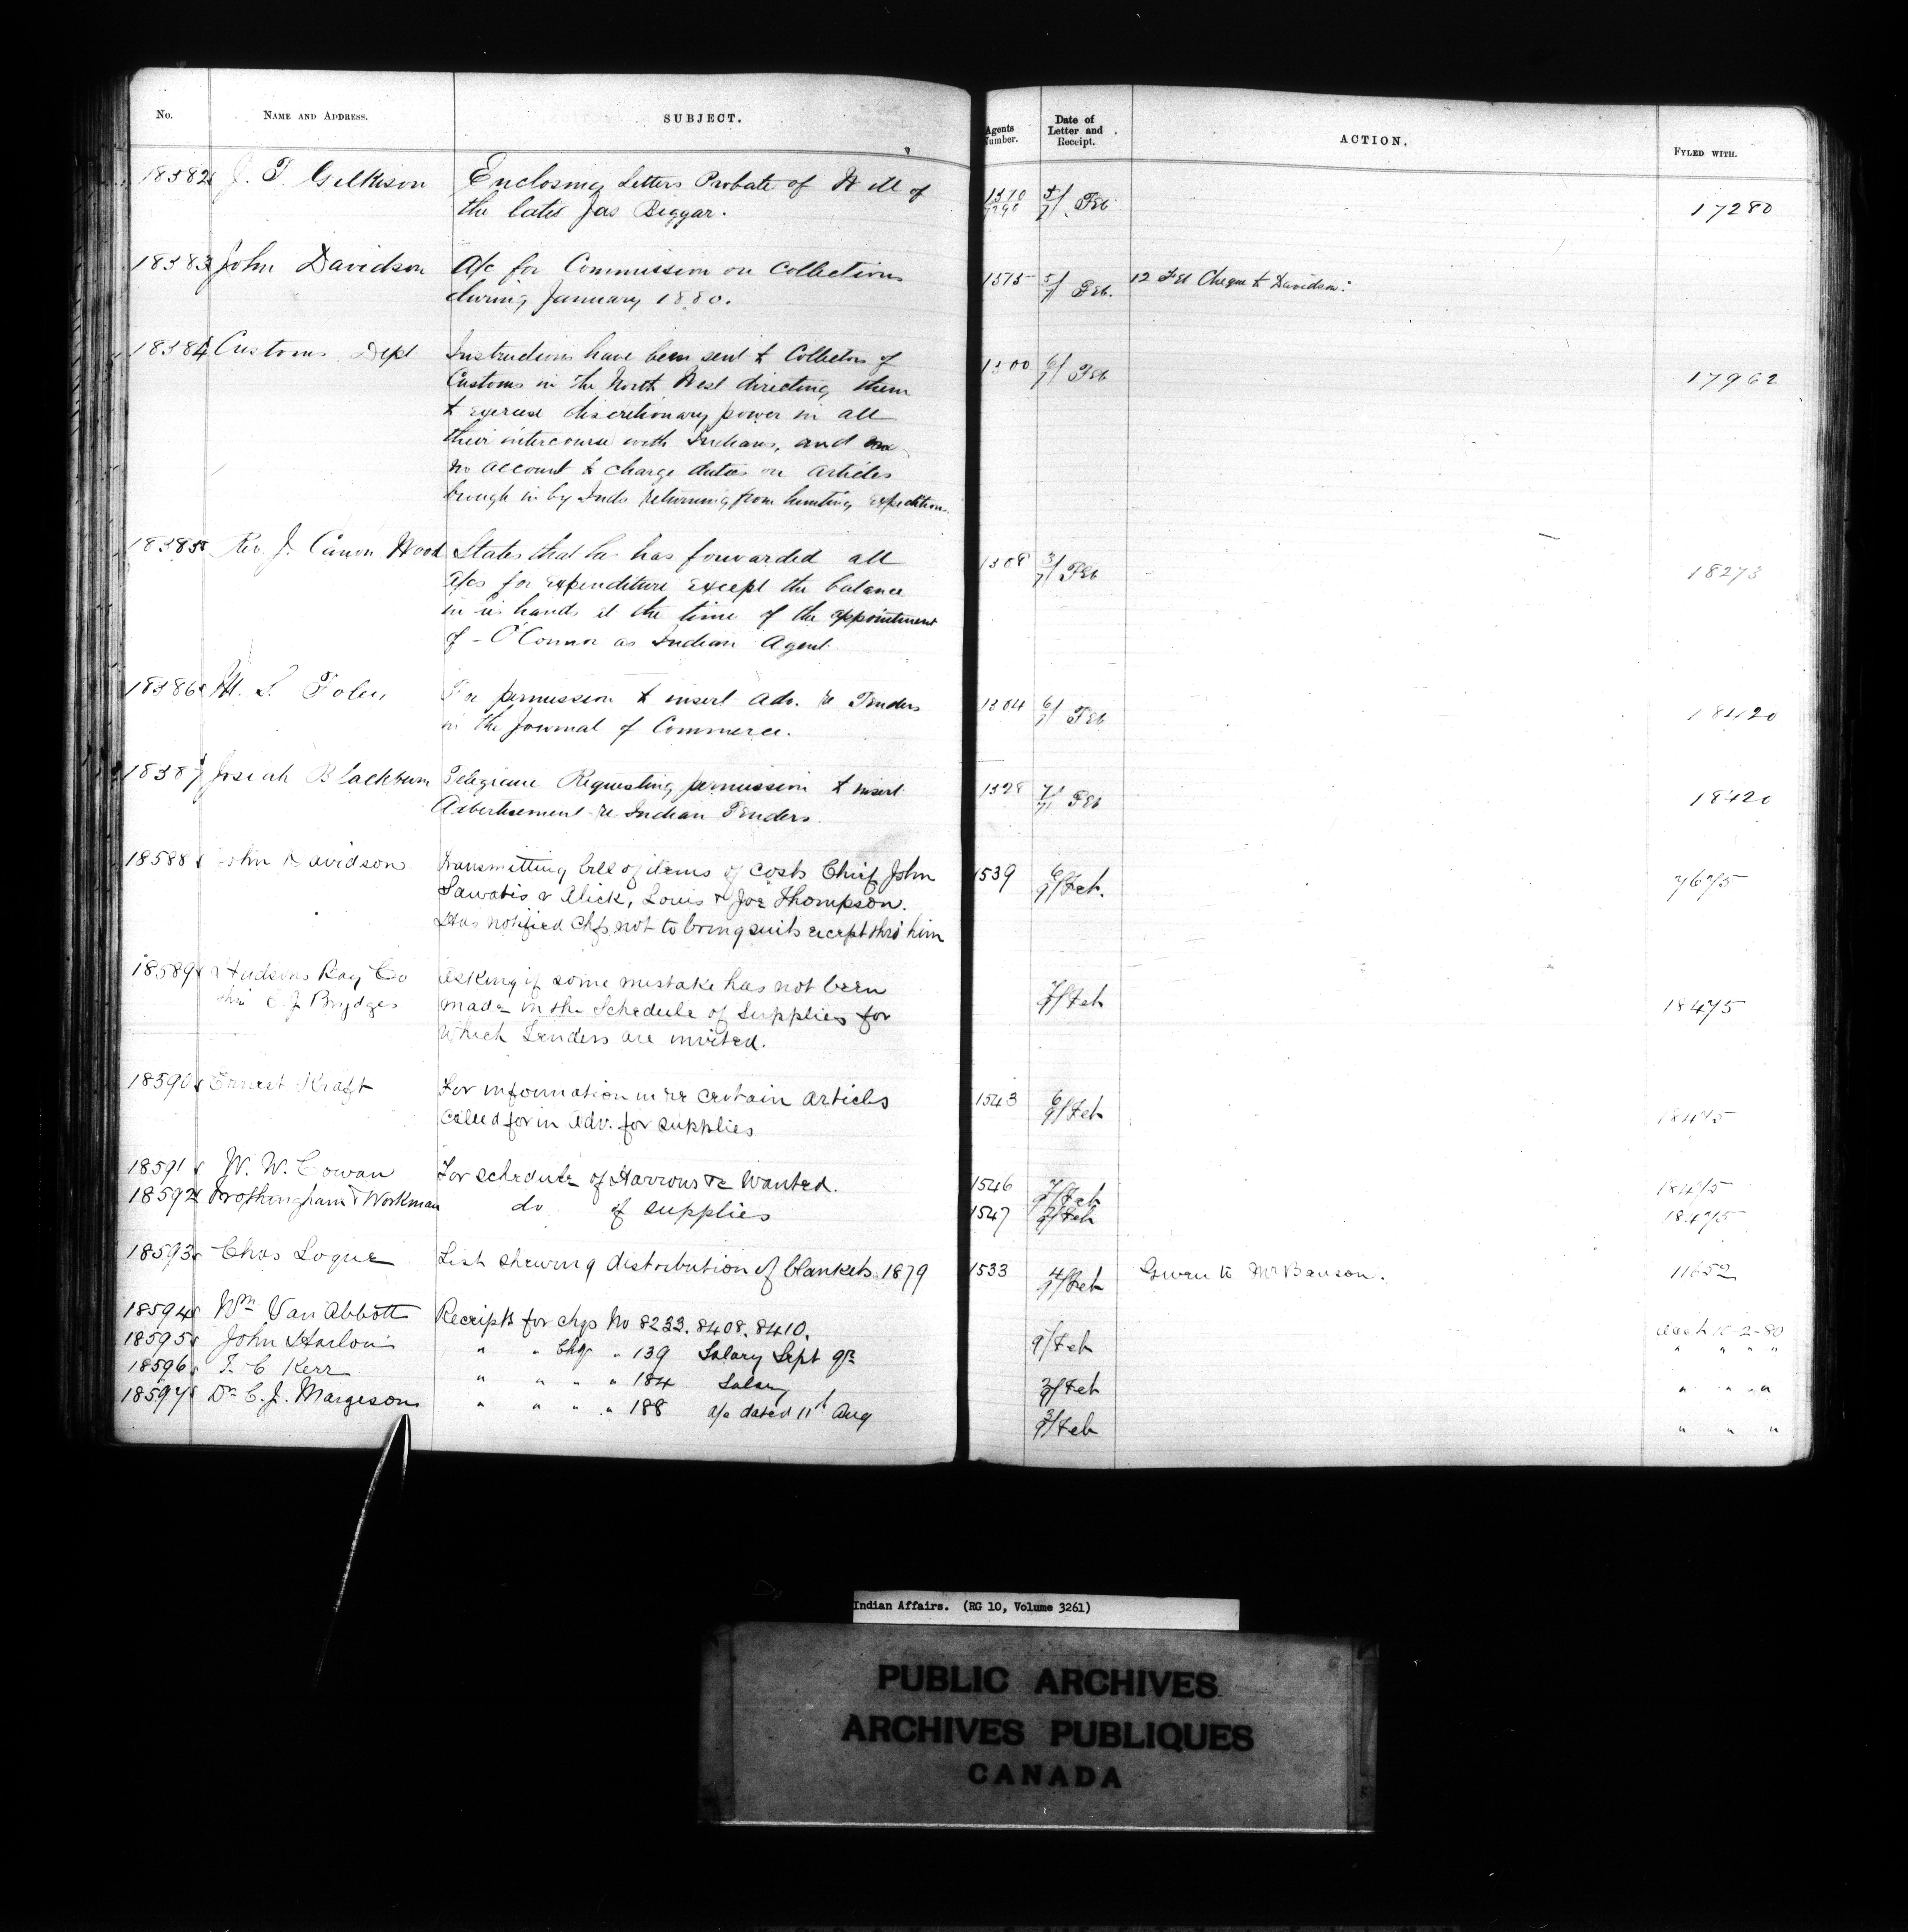 No. NAME AND ADDRESS. SUBJECT. Agents Number. Date of Letter and Receipt. ACTION. FYLED WITH.
18382 J. T. Gilkison Enclosing Letters Probate of Will of 5/7 Feb 17280
the late Jas Beggar.
18383 John Davidson A/c for Commission on Collections 1375 5/7 Feb. 12 Feb Cheque to Davidson.
during January 1880.
18384 Customs Dept Instructions have been sent to Collectors of 1300 6/7 Feb 17962
Customs in the North West directing them
to exercise discretionary power in all
their intercourse with Indians, and on
no account to charge duties on articles
brough in by Inds returning from hunting expedition.
18385 Rev. J. Canon Wood States that he has forwarded all 1308 3/7 Feb 18273
a/cs for expenditure except the balance
in his hands at the time of the appointment
of - O'Connor as Indian Agent.
18386 M. S. Foley For permission to insert adv. re Tenders 1304 6/7 Feb 18420
in the Journal of Commerce.
18387 Josiah Blackburn Telegram Requesting permission to insert 1328 7/7 Feb 18420
Advertisement re Indian Tenders.
18588 John Davidson Transmitting bill of items of costs Chief John 1539 6/9 Feb. 7675
Sawatis v Alick, Louis & Joe Thompson.
Has notified Chfs not to bring suits except thro' him
18589 Hudsons Bay Co Asking if some mistake has not been 7/9 Feb 18475
thro' C. J. Brydges made in the Schedule of Supplies for
which Tenders are invited.
18590 Ernest Kraft For information in re certain articles 1543 6/9 Feb 18475
called for in Adv. for supplies
18591 W. W. Cowan For schedule of Harrows &c Wanted. 1546 7/9 Feb 18475
18592 Frothingham & Workman do of supplies 1547 7/9 Feb 18475
18593 Chas Logue List shewing distribution of blankets 1879 1533 4/9 Feb Given to Mr Banson. 11652
18594 Wm Van Abbott Receipts for chqs No 8233. 8408. 8410. 2-80
18595 John Harlow " " Chq " 139 Salary Sept qr 9/Feb " " " "
18596 T. C Kerr " " " " 184 Salary 3/9 Feb " " "
18597 Dr C. J. Margeson " " " " 188 a/c dated 11th Aug 3/9 Feb " " "
Indian Affairs. (RG 10, Volume 3261)
PUBLIC ARCHIVES
ARCHIVES PUBLIQUES
CANADA